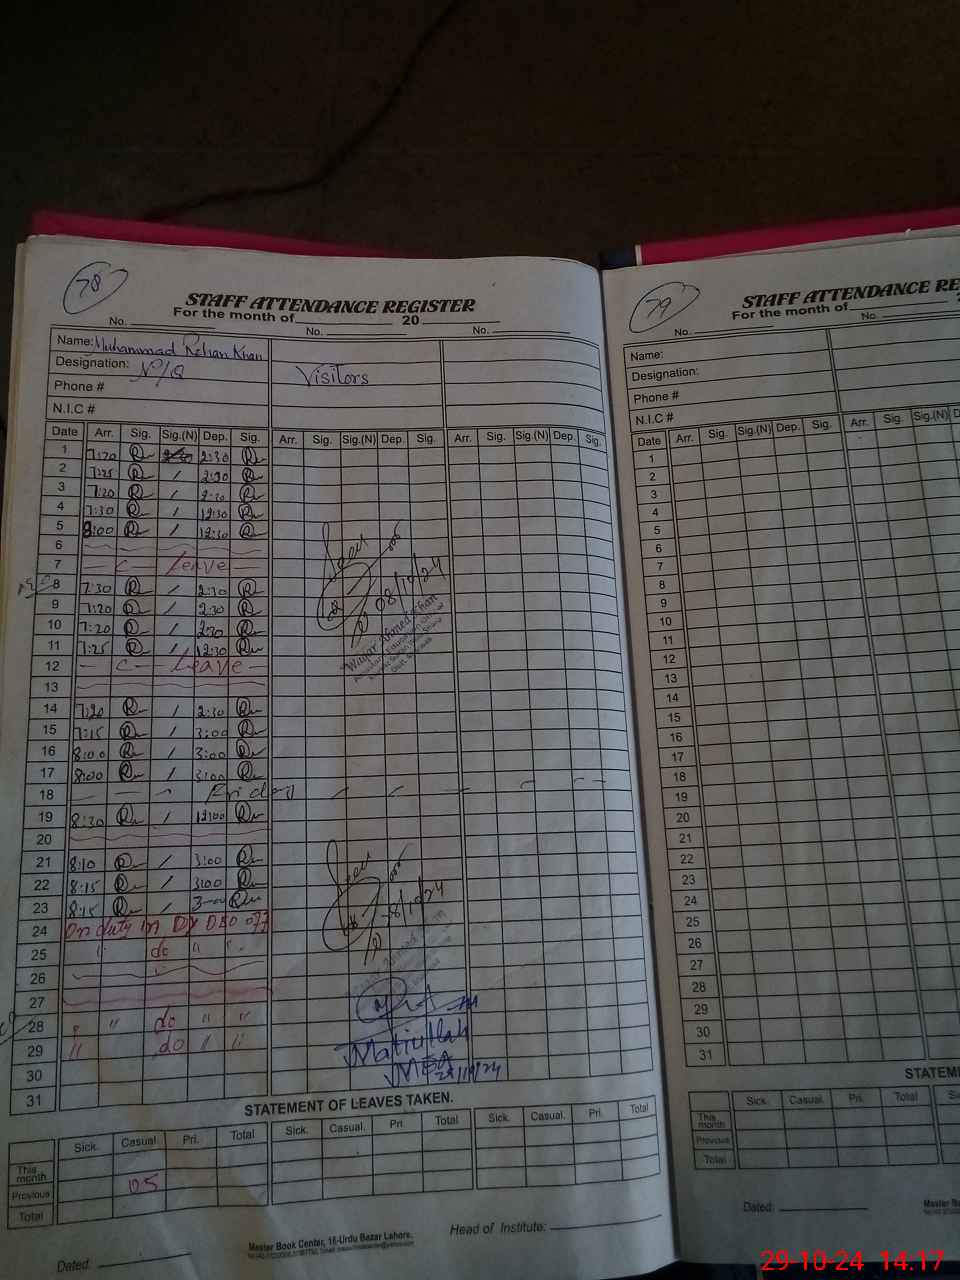 78
STAFF ATTENDANCE REGISTER
For the month of 20
No. No. No.
Name: Muhammad Rehan Khan
Designation: N/Q Visitors
Phone #
N.I.C #
Date Arr. Sig. Sig.(N) Dep. Sig. Arr. Sig. Sig.(N) Dep. Sig. Arr. Sig. Sig.(N) Dep. Sig.
1 7:20 2:30 2:30
2 7:25 2:30
3 7:20 2:30
4 7:30 12:30
5 8:00 12:30
6
7 C Leave
8 7:30 2:30
9 7:20 2:30
10 7:20 2:30
11 7:25 12:30
12 C Leave
13
14 7:20 2:30
15 7:15 3:00
16 8:00 3:00
17 8:00 3:00
18 Friday
19 8:30 12:00
20
21 8:10 3:00
22 8:15 3:00
23 8:15 3:00
24 On duty in DY DEO off
25 " do " "
26
27
28 " " do " "
29 " do " "
30
31
Seen
08/10/24
Waqar Ahmed Khan
Seen
Matiullah
MEA
STATEMENT OF LEAVES TAKEN.
Sick. Casual Pri. Total Sick. Casual. Pri. Total Sick. Casual. Pri. Total
This month
Previous 05
Total
Master Book Center, 16-Urdu Bazar Lahore.
Head of Institute:
Dated:
79
STAFF ATTENDANCE RE
For the month of
No. No.
Name:
Designation:
Phone #
N.I.C #
Date Arr. Sig. Sig.(N) Dep. Sig. Arr. Sig. Sig.(N) D
1
2
3
4
5
6
7
8
9
10
11
12
13
14
15
16
17
18
19
20
21
22
23
24
25
26
27
28
29
30
31
STATEM
Sick. Casual. Pri. Total
This month
Previous
Total
Dated:
Master Bo
29-10-24 14:17